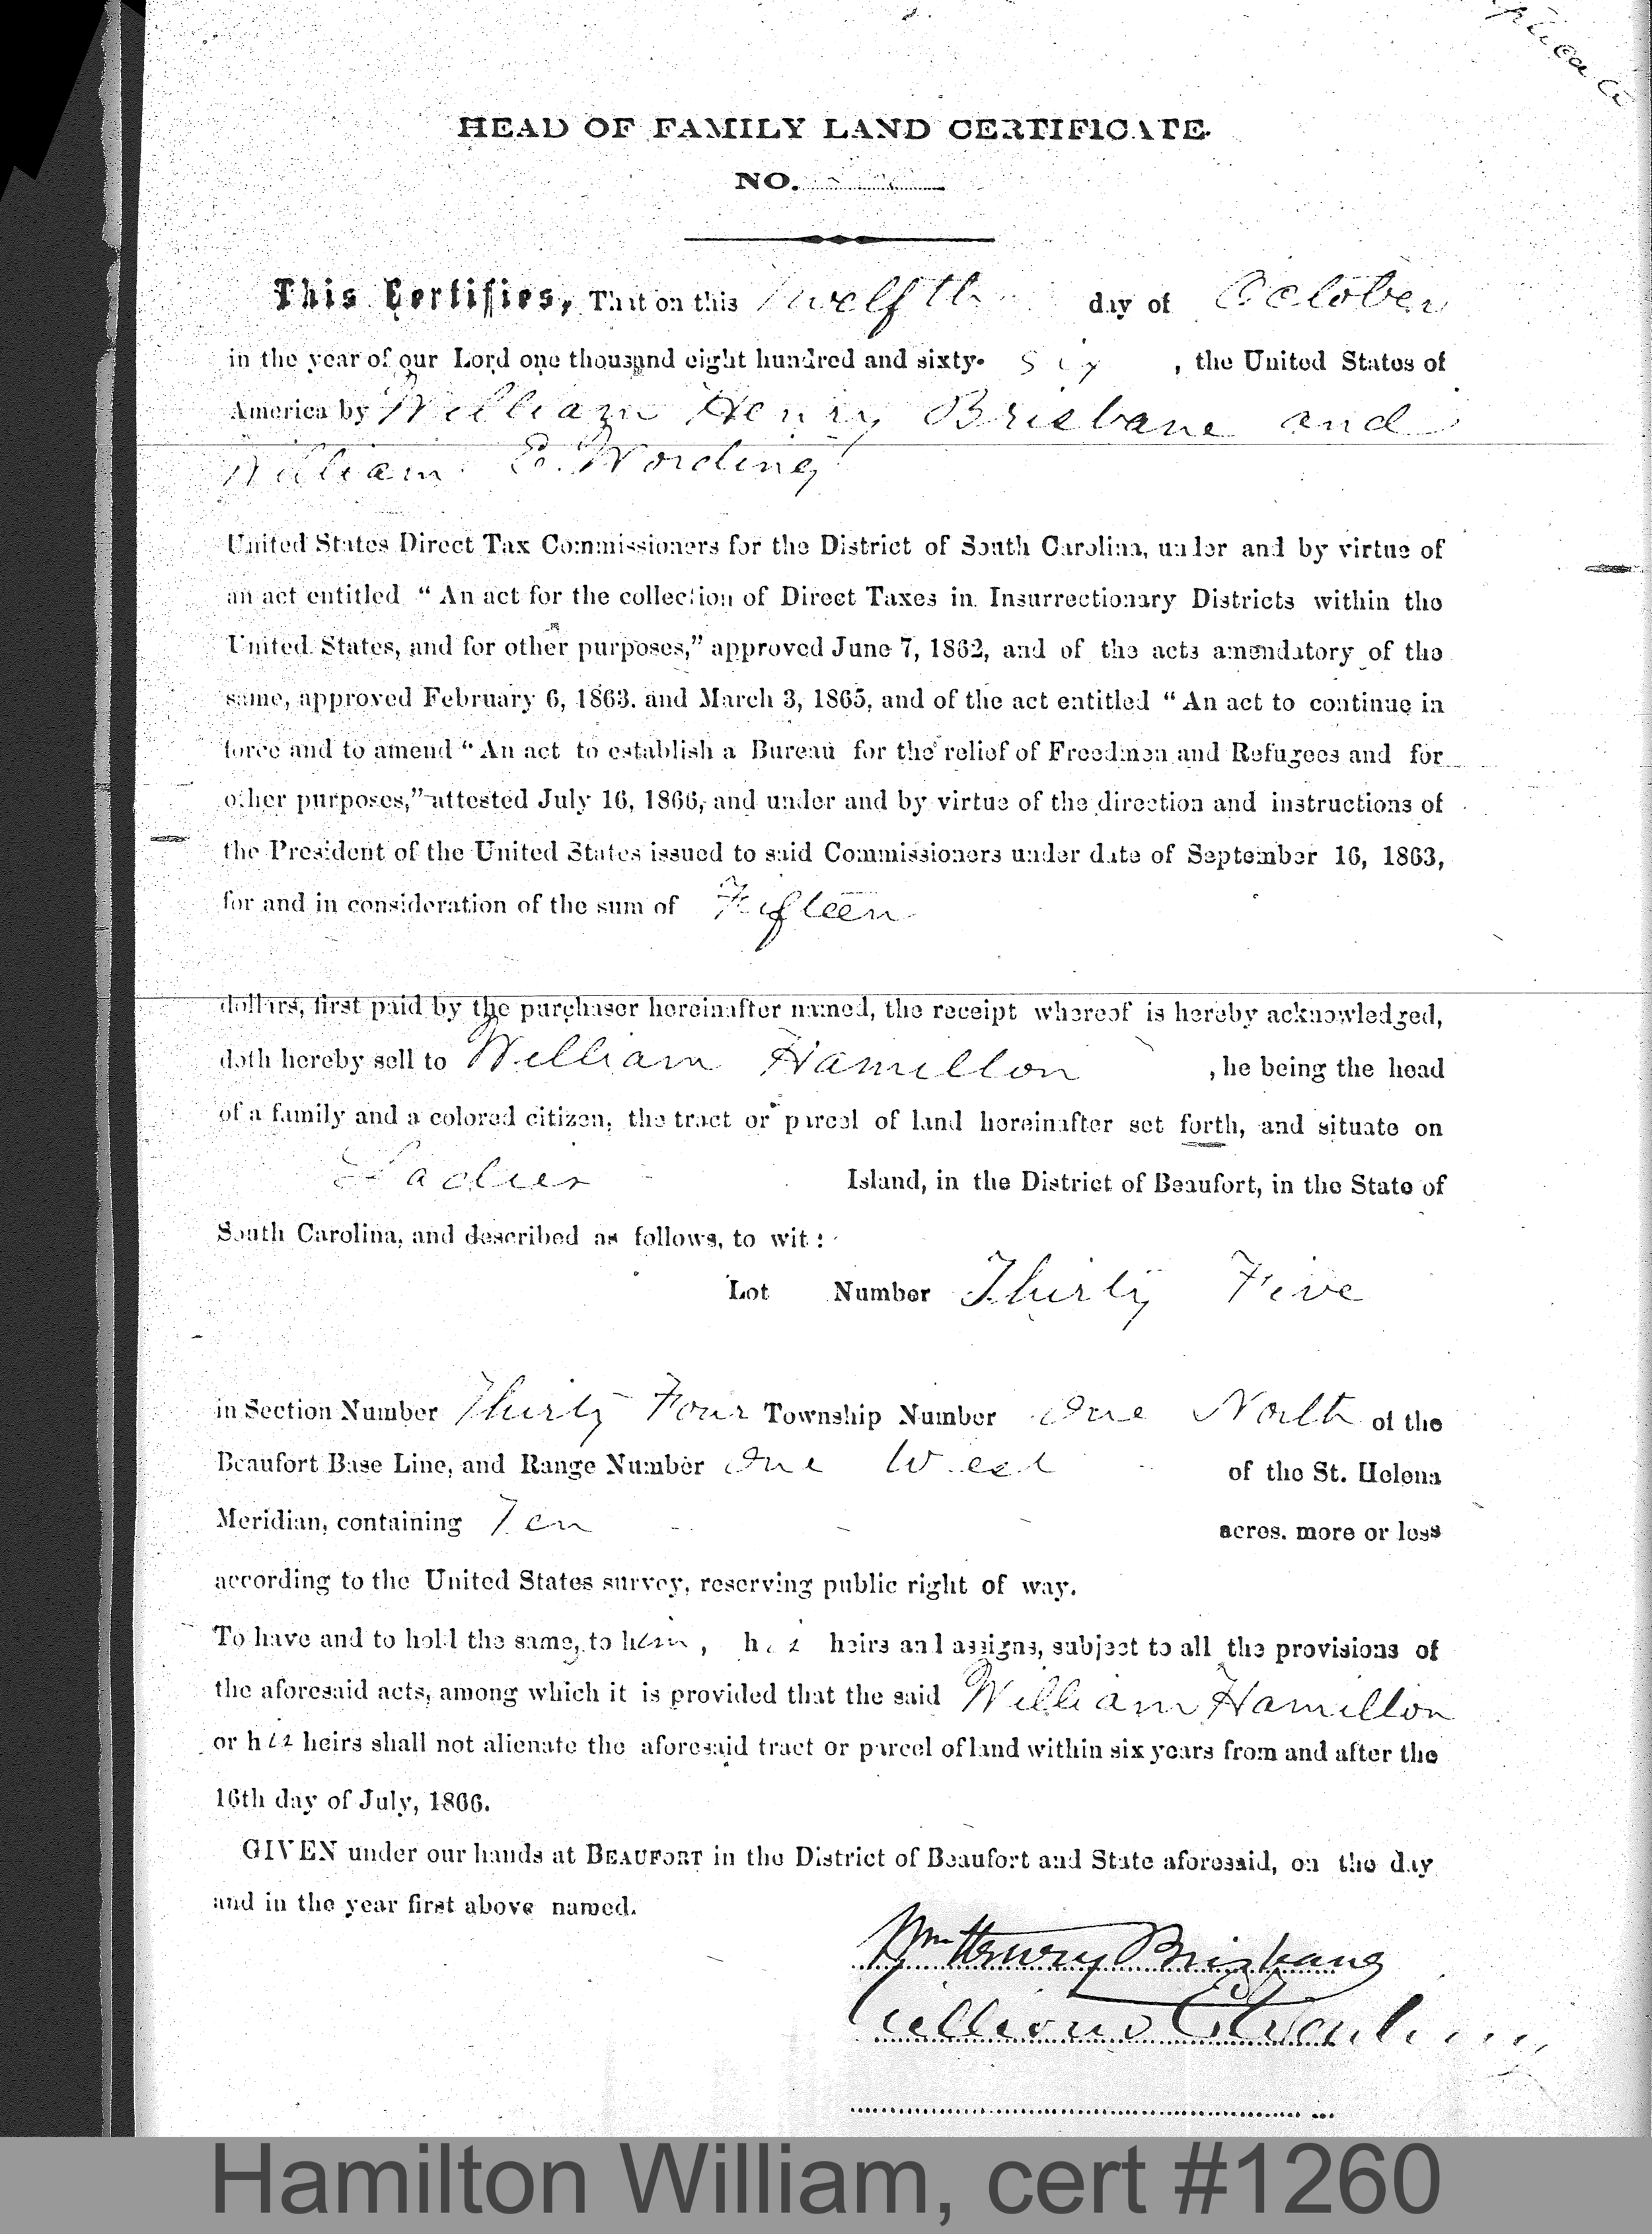 HEAD OF FAMILY LAND CERTIFICATE.
NO.
This Certifies, That on this Twelfth day of October
in the year of our Lord one thousand eight hundred and sixty- six , the United States of
America by William Henry Brisbane and
William E. Wording
United States Direct Tax Commissioners for the District of South Carolina, under and by virtue of
an act entitled “ An act for the collection of Direct Taxes in Insurrectionary Districts within the
United States, and for other purposes,” approved June 7, 1862, and of the acts amendatory of the
same, approved February 6, 1863. and March 3, 1865, and of the act entitled “ An act to continue in
force and to amend “ An act to establish a Bureau for the relief of Freedmen and Refugees and for
other purposes,” attested July 16, 1866, and under and by virtue of the direction and instructions of
the President of the United States issued to said Commissioners under date of September 16, 1863,
for and in consideration of the sum of Fifteen
dollars, first paid by the purchaser hereinafter named, the receipt whereof is hereby acknowledged,
doth hereby sell to William Hamilton , he being the head
of a family and a colored citizen, the tract or parcel of land hereinafter set forth, and situate on
Ladies Island, in the District of Beaufort, in the State of
South Carolina, and described as follows, to wit :
Lot Number Thirty Five
in Section Number Thirty Four Township Number One North of the
Beaufort Base Line, and Range Number One West of the St. Helena
Meridian, containing Ten acres. more or less
according to the United States survey, reserving public right of way.
To have and to hold the same, to him, his heirs and assigns, subject to all the provisions of
the aforesaid acts, among which it is provided that the said William Hamilton
or his heirs shall not alienate the aforesaid tract or parcel of land within six years from and after the
16th day of July, 1866.
GIVEN under our hands at BEAUFORT in the District of Beaufort and State aforesaid, on the day
and in the year first above named.
Wm Henry Brisbane
William E. Wording
Hamilton William, cert #1260